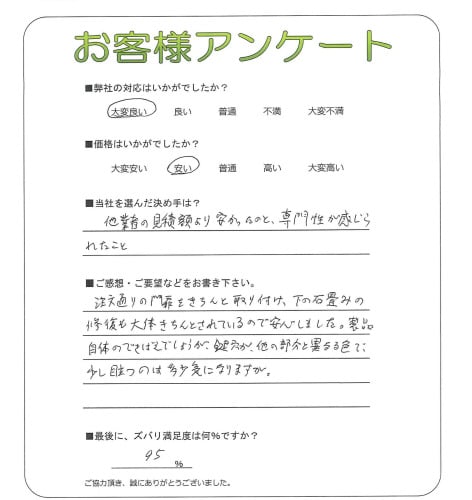 お客様アンケート
■弊社の対応はいかがでしたか？
大変良い 良い 普通 不満 大変不満
■価格はいかがでしたか？
大変安い 安い 普通 高い 大変高い
■当社を選んだ決め手は？
他業者の見積額より安かったのと、専門性が感じら
れたこと
■ご感想・ご要望などをお書き下さい。
注文通りの門扉をきちんと取り付け、下の石畳みの
修復も大体きちんとされているので安心しました。製品
自体のできばえでしょうが、鍵穴が、他の部分と異なる色で、
少し目立つのは多少気になりますが。
■最後に、ズバリ満足度は何%ですか？
95 %
ご協力頂き、誠にありがとうございました。